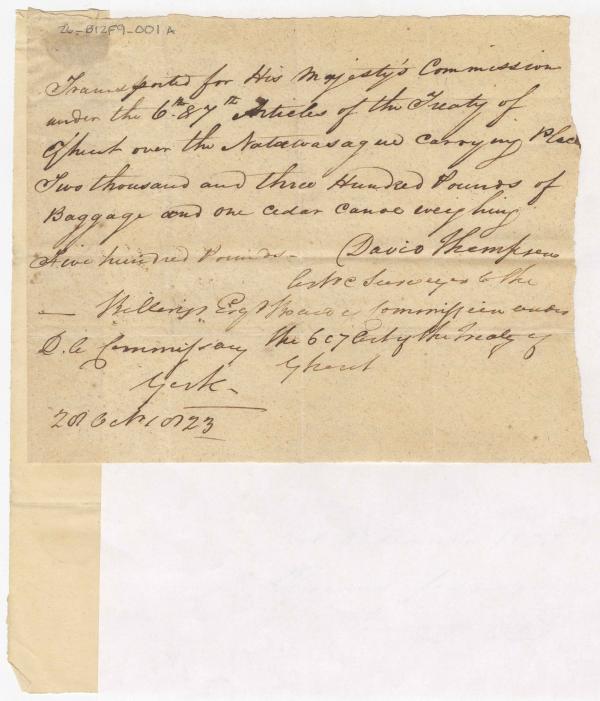 26-B12F9-001 A
Transported for His Majesty's Commission
under the 6th & 7th Articles of the Treaty of
Ghent over the Natawasague carrying Place
Two thousand and three Hundred Pounds of
Baggage and one cedar canoe weighing
Five hundred Pounds - David Thompson
Astrc Surveyor to the
— Billings Esqr Board of Commission under
D. A Commissary the 6 & 7 Art of the Treaty of
York - Ghent
28 Octr 1823